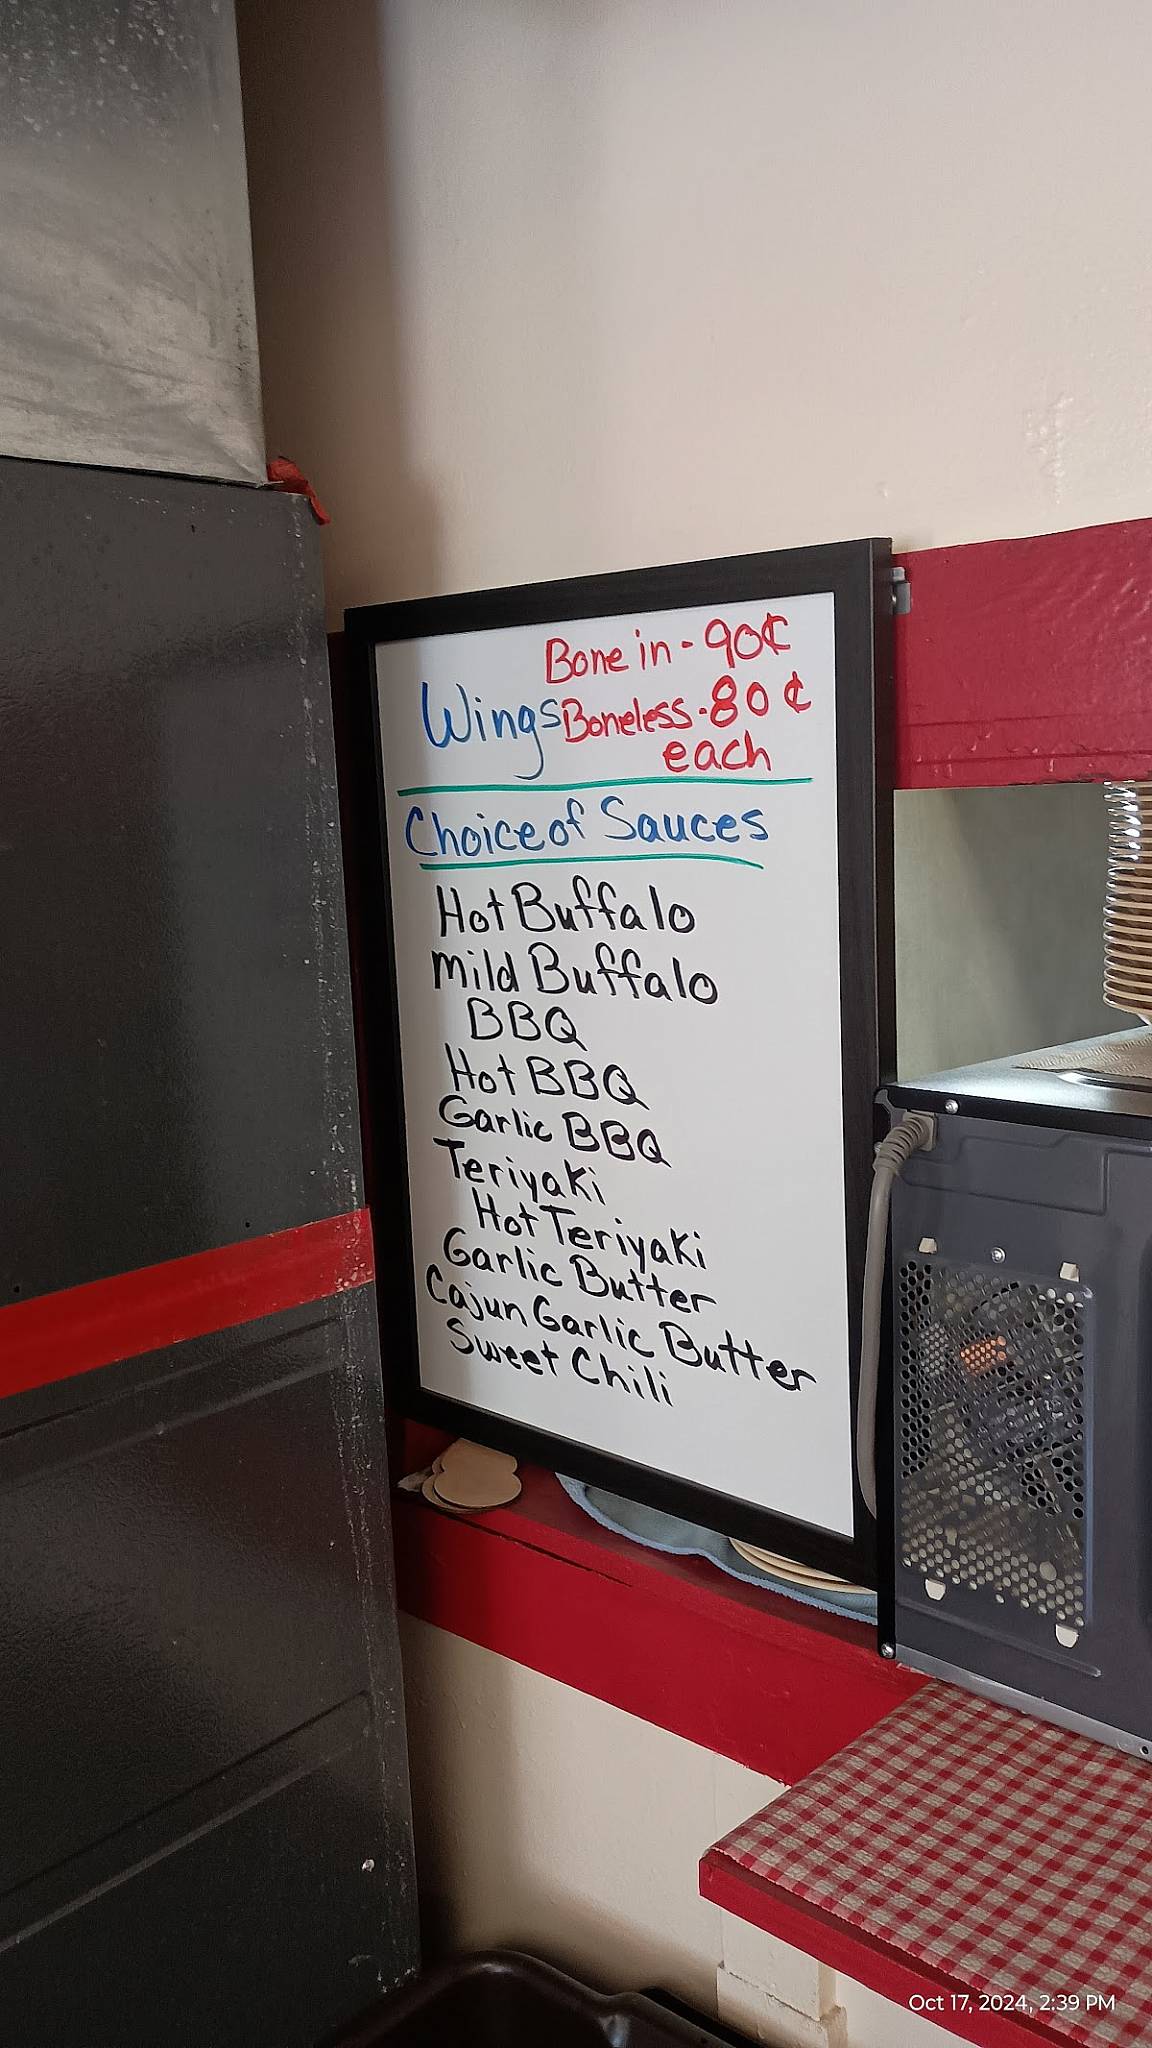 Bone in - 90¢
Wings Boneless - 80¢
each
Choice of Sauces
Hot Buffalo
mild Buffalo
BBQ
Hot BBQ
Garlic BBQ
Teriyaki
Hot Teriyaki
Garlic Butter
Cajun Garlic Butter
Sweet Chili
Oct 17, 2024, 2:39 PM